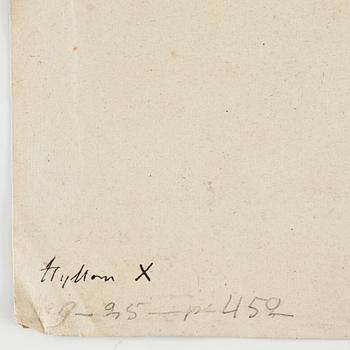 Hyllan X
9-25-p-452